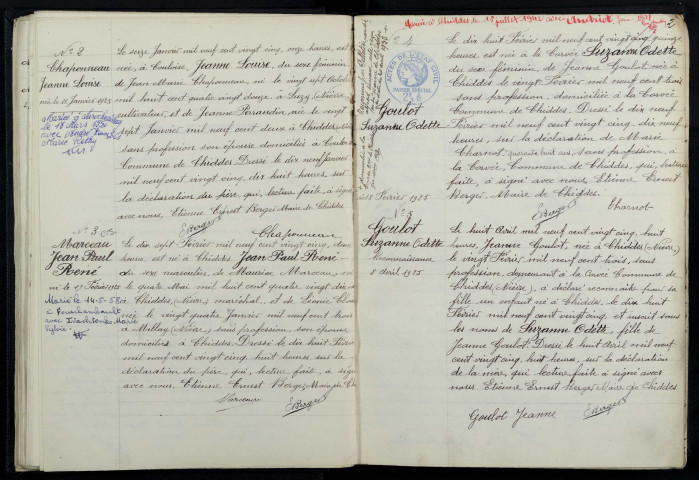 N° 2
Chaponneau
Jeanne Louise
née le 16 Janvier 1925
le 18 Mars 1950
avec
Le seize Janvier mil neuf cent vingt cinq, onze heures, est
née, à Couloise, Jeanne Louise, du sexe féminin
de Jean Marie Chaponneau, né le vingt sept Octobre
mil huit cent quatre vingt douze à Luzy (Nièvre)
cultivateur, et de Jeanne Peraudin, née le vingt
sept Janvier mil neuf cent deux à Chiddes (Nièvre)
sans profession son épouse domiciliés à Couloise
Commune de Chiddes. Dressé le dix neuf Janvier
mil neuf cent vingt cinq, dix huit heures, sur
la déclaration du père, qui, lecture faite, a signé
avec nous, Etienne Ernest Berger Maire de Chiddes
EBerger
Chaponneau
N° 3
Marceau
Jean Paul
René
né le 17 Février 1925
Marié le 14-5-58
à Fourchambault
avec
Marie
Sylvie
Le dix sept Février mil neuf cent vingt cinq, deux
heures, est né à Chiddes Jean Paul René
du sexe masculin, de Maurice Marceau, né
le quatre Mai mil huit cent quatre vingt dix
Chiddes, (Nièvre) maréchal, et de Léonie
née le vingt quatre Janvier mil neuf cent trois
à Millay (Nièvre) sans profession, son épouse
domiciliés à Chiddes. Dressé le dix huit Février
mil neuf cent vingt cinq, huit heures, sur la
déclaration du père, qui, lecture faite, a signé
avec nous, Etienne Ernest Berger, Maire de
Marceau
EBerger
Mariée à Chiddes le 18 juillet 1942 avec Andriot
N° 4
ACTES DE L'ETAT CIVIL
PAPIER SPECIAL
Goulot
Suzanne Odette
18 Février 1925
Le dix huit Février mil neuf cent vingt cinq, quinze
heures est née à la Corvée Suzanne Odette
du sexe féminin de Jeanne Goulot née à
Chiddes le vingt Février mil neuf cent trois
sans profession, domiciliée à la Corvée
Commune de Chiddes. Dressé le dix neuf
Février mil neuf cent vingt cinq, dix neuf
heures, sur la déclaration de Marie
Charnot, quarante huit ans, sans profession, à
la Corvée, Commune de Chiddes, qui, lecture
faite, a signé avec nous, Etienne Ernest
Berger, Maire de Chiddes.
EBerger
Charnot
N° 5
Goulot
Suzanne Odette
Reconnaissance
8 avril 1925
Le huit Avril mil neuf cent vingt cinq, huit
heures, Jeanne Goulot, née à Chiddes (Nièvre)
le vingt Février mil neuf cent trois, sans
profession, demeurant à la Corvée Commune de
Chiddes (Nièvre), a déclaré reconnaître pour sa
fille un enfant né à Chiddes, le dix huit
Février mil neuf cent vingt cinq, et inscrit sous
les noms de Suzanne Odette, fille de
Jeanne Goulot. Dressé le huit Avril mil neuf
cent vingt cinq, huit heures, sur la déclaration
de la mère, qui lecture faite, a signé avec
nous. Etienne Ernest Berger, Maire de Chiddes
Goulot Jeanne
EBerger